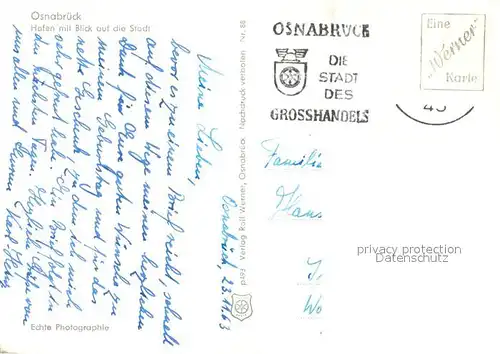 Osnabrück
Hafen mit Blick auf die Stadt
Osnabrück, 23.11.63
Meine Lieben,
bevor es zu einem Brief reicht, schnell
auf diesem Wege meinen herzlichen
Dank für Eure guten Wünsche zu
meinem Geburtstag und für das
nette Geschenk, zu dem ich mich
sehr gefreut habe. Ein Brief folgt in
den nächsten Tagen. Herzliche Grüße von
uns allen und Eurem
Karl-Heinz
Echte Photographie
p493 Verlag Rolf Werner, Osnabrück Nachdruck verboten Nr. 88
OSNABRÜCK
DIE
STADT
DES
GROSSHANDELS
Eine
„Werner"
Karte
45
Familie
Hans
privacy protection
Datenschutz